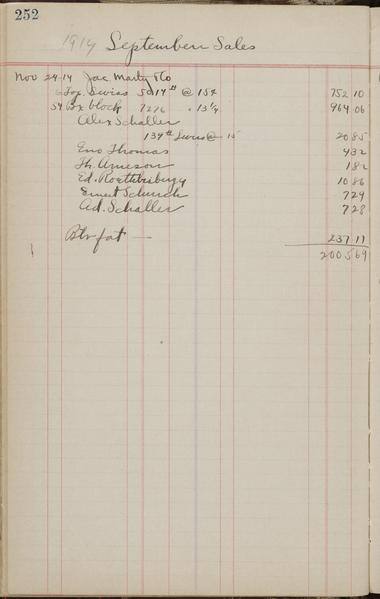 252
1914 September Sales
Nov 24-14 Jac Marty & Co
Swiss 5014 # @ 15¢ 752 10
54 Bx block 7276 " 13 1/4 964 06
Alex Schaller
139 # Swiss @ 15 20 85
Eno Thomas 4 32
Th. Arneson 1 82
Ed. Roethlisburg 10 86
Ernest Schurch 7 29
Ad. Schaller 7 28
Btr fat — 237 11
2005 69